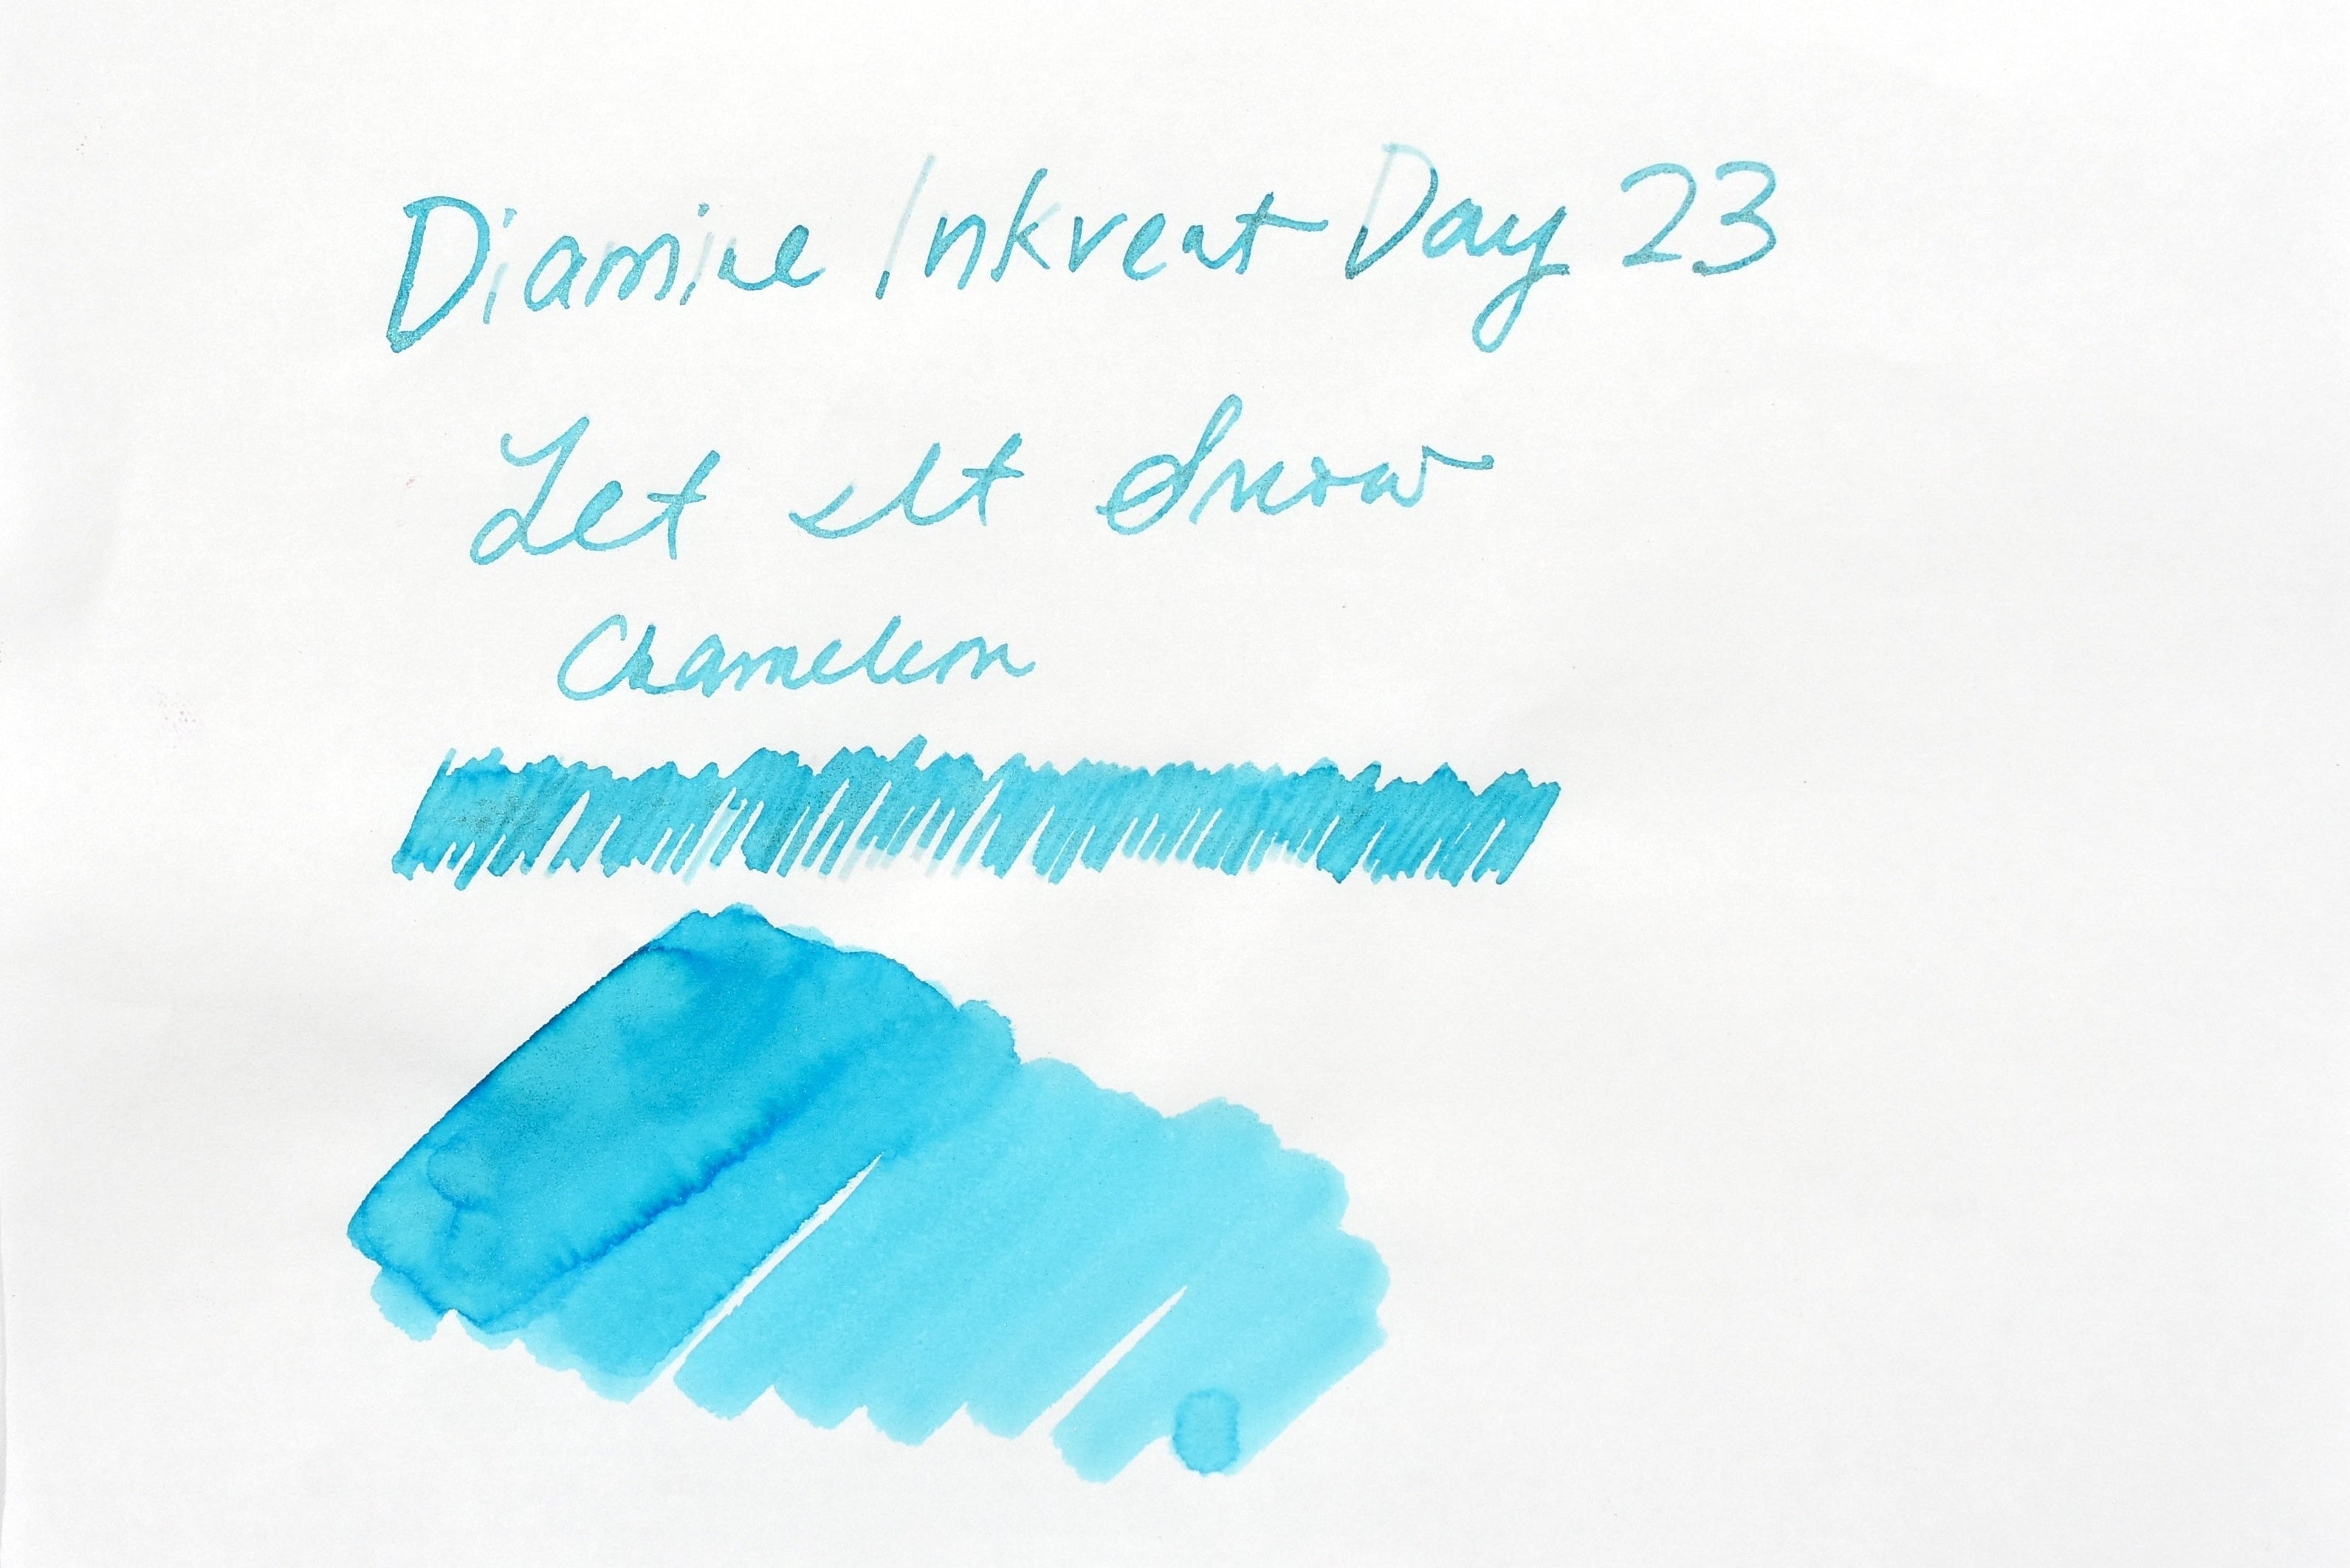 Diamine Inkvent Day 23
Let It Snow
Chameleon